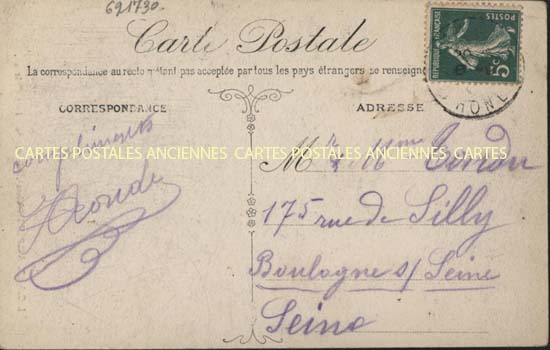 621730.
Carte Postale
La correspondance au recto n'étant pas acceptée par tous les pays étrangers se renseigner
CORRESPONDANCE
ADRESSE
compliments
CARTES POSTALES ANCIENNES CARTES POSTALES ANCIENNES CARTES POSTALES ANCIENNES
M
175 rue de Silly
Boulogne s/ Seine
Seine
POSTES
REPUBLIQUE FRANÇAISE
5c